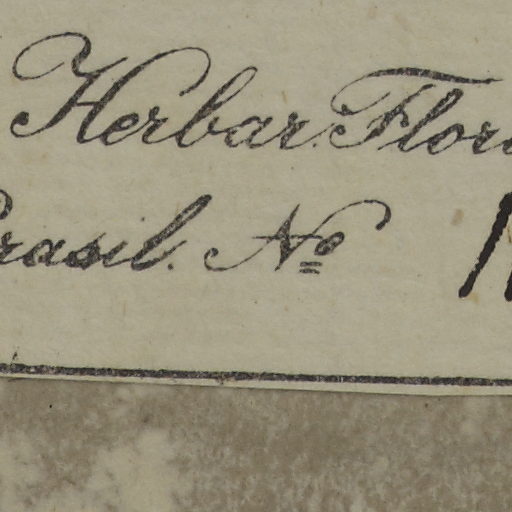 Herbar. Flor
rasil. No